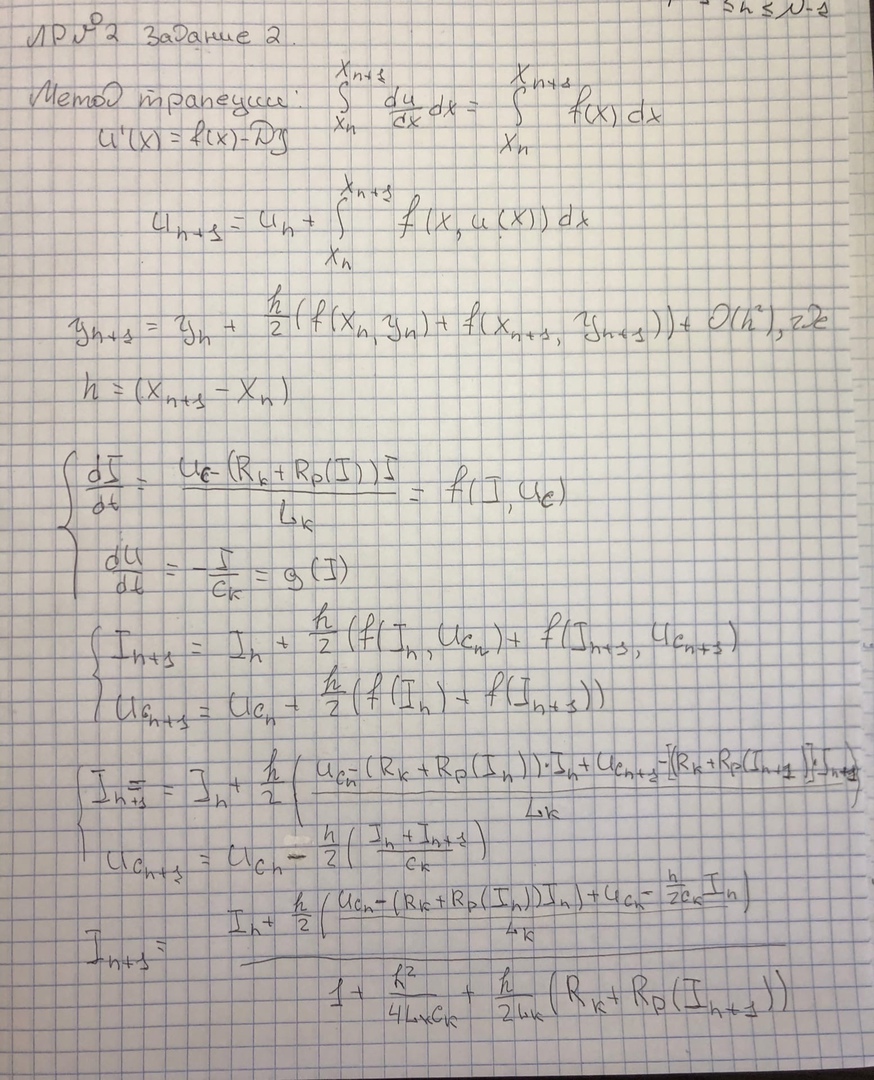 ≤ n ≤ N-1
ЛР №2 Задание 2.
Метод трапеции: ∫_{x_n}^{x_{n+1}} du/dx dx = ∫_{x_n}^{x_{n+1}} f(x) dx
u'(x) = f(x) - ДУ
u_{n+1} = u_n + ∫_{x_n}^{x_{n+1}} f(x, u(x)) dx
y_{n+1} = y_n + h/2 (f(x_n, y_n) + f(x_{n+1}, y_{n+1})) + O(h²), где
h = (x_{n+1} - x_n)
{ dI/dt = (U_c - (R_k + R_p(I))I) / L_k = f(I, U_c)
dU/dt = - I/C_k = g(I)
{ I_{n+1} = I_n + h/2 (f(I_n, U_{c_n}) + f(I_{n+1}, U_{c_{n+1}})
U_{c_{n+1}} = U_{c_n} + h/2 (f(I_n) + f(I_{n+1}))
{ I_{n+1} = I_n + h/2 ( (U_{c_n} - (R_k + R_p(I_n))·I_n + U_{c_{n+1}} - [(R_k + R_p(I_{n+1})]·I_{n+1} ) / L_k )
U_{c_{n+1}} = U_{c_n} - h/2 ( (I_n + I_{n+1}) / C_k )
I_{n+1} = ( I_n + h/2 ( (U_{c_n} - (R_k + R_p(I_n))I_n) + U_{c_n} - h/2C_k I_n ) / L_k ) ) / ( 1 + h²/4L_kC_k + h/2L_k (R_k + R_p(I_{n+1})) )